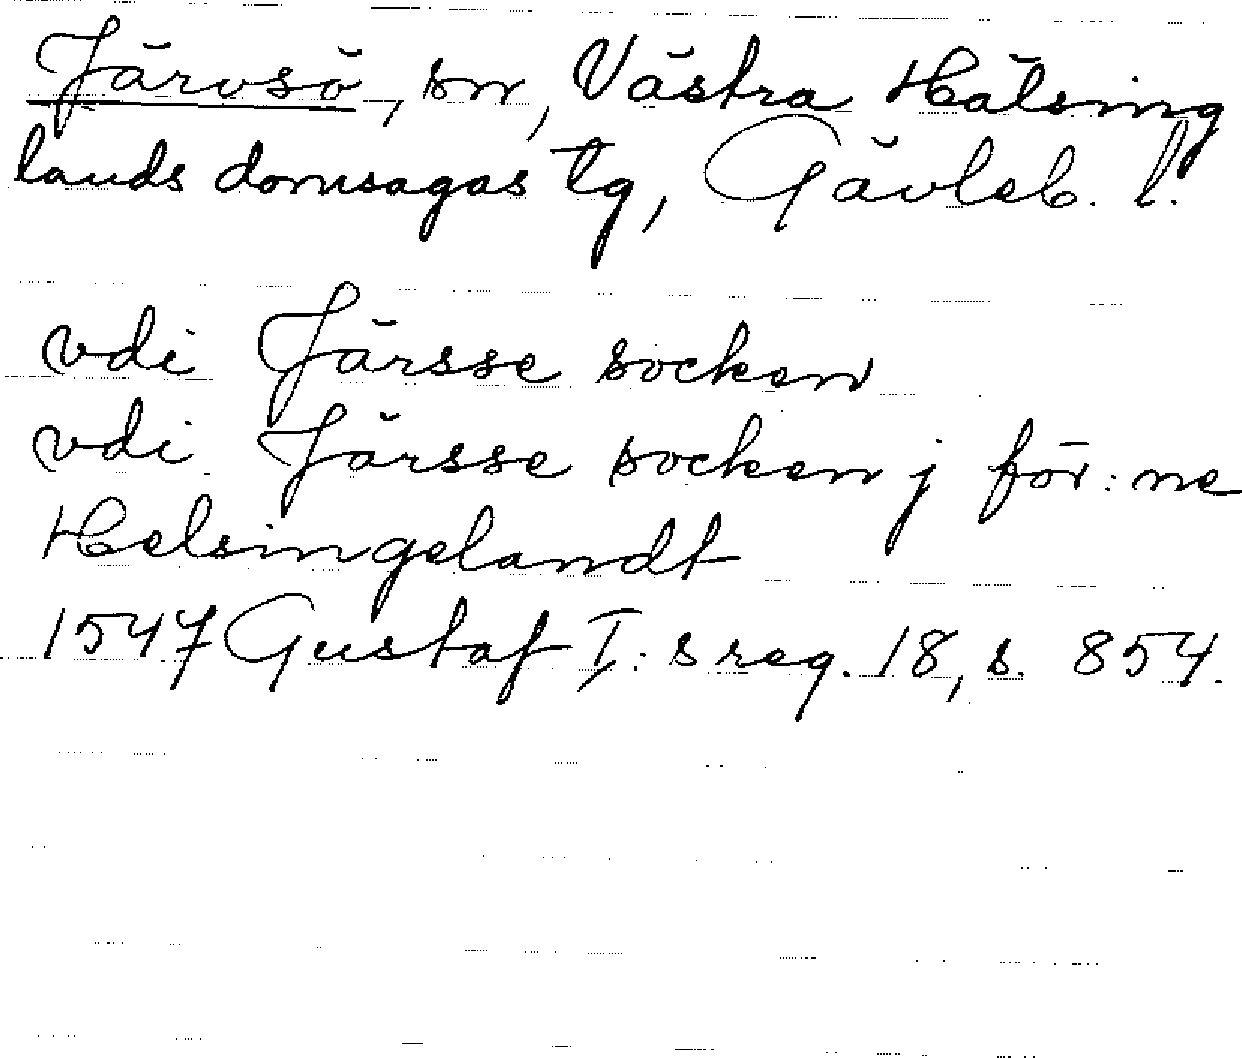 Järvsö, sn, Västra Hälsing
lands domsagas tg, Gävleb. l.
vdi Järsse socken
vdi Järsse socken j för:ne
Helsingelandt
1547 Gustaf I:s reg. 18, s. 854.